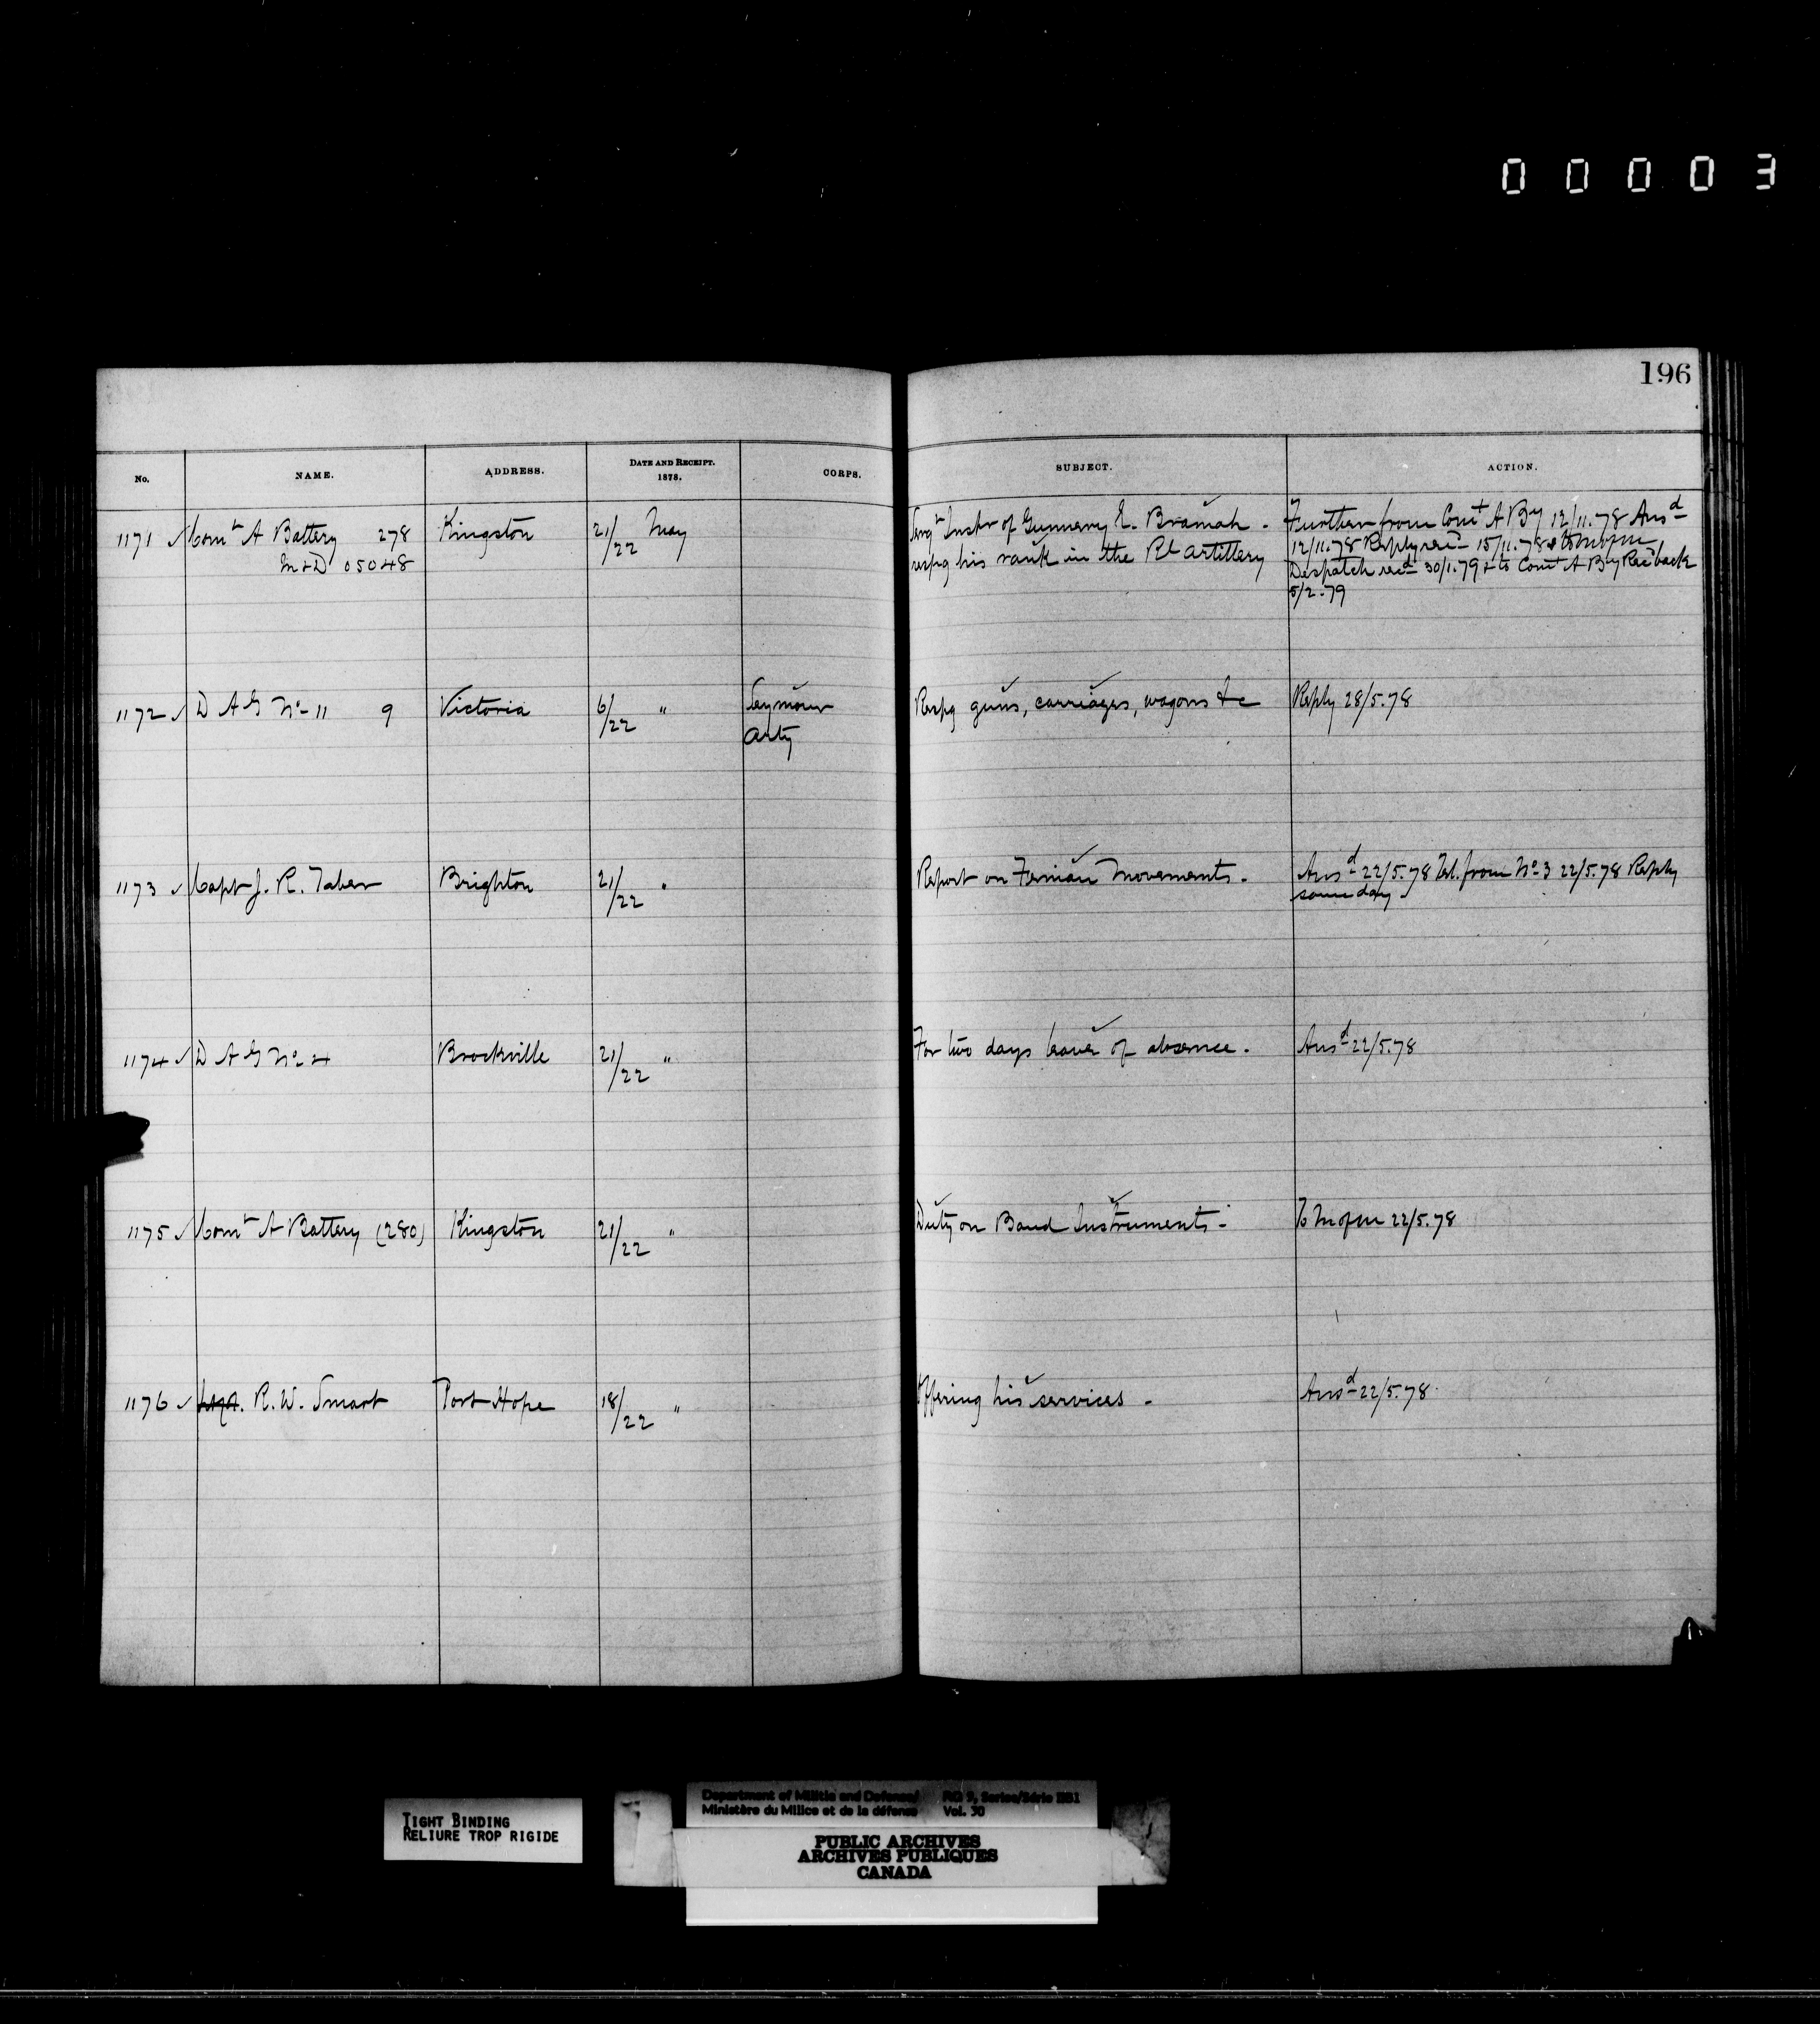 00003
196
No. NAME. ADDRESS. DATE AND RECEIPT. 1878. CORPS. SUBJECT. ACTION.
1171 Comt A Battery 278 Kingston 21/22 May Sergt Instr of Gunnery E. Bramah - Further from Comt A By 12/11.78 Ansd
M&D 05048 respg his rank in the Rl Artillery 12/11.78 Reply recd 15/11.78 & to M of M
Despatch recd 30/1.79 & to Comt A By Recd back
5/2.79
1172 D A G No 11 9 Victoria 6/22 " Seymour Respg guns, carriages, wagons &c Reply 28/5.78
Arty
1173 Capt J. R. Taber Brighton 21/22 " Report on Fenian Movements. Ansd 22/5.78 Tel. from No 3 22/5.78 Reply
same day
1174 D A G No 4 Brockville 21/22 " For two days leave of absence. Ansd 22/5.78
1175 Comt A Battery (280) Kingston 21/22 " Duty on Band Instruments - To M of M 22/5.78
1176 R. W. Smart Port Hope 18/22 " Offering his services - Ansd 22/5.78
TIGHT BINDING
RELIURE TROP RIGIDE
Department of Militia and Defence/ RG 9, Series/Série IIB1
Ministère du Milice et de la défense Vol. 30
PUBLIC ARCHIVES
ARCHIVES PUBLIQUES
CANADA